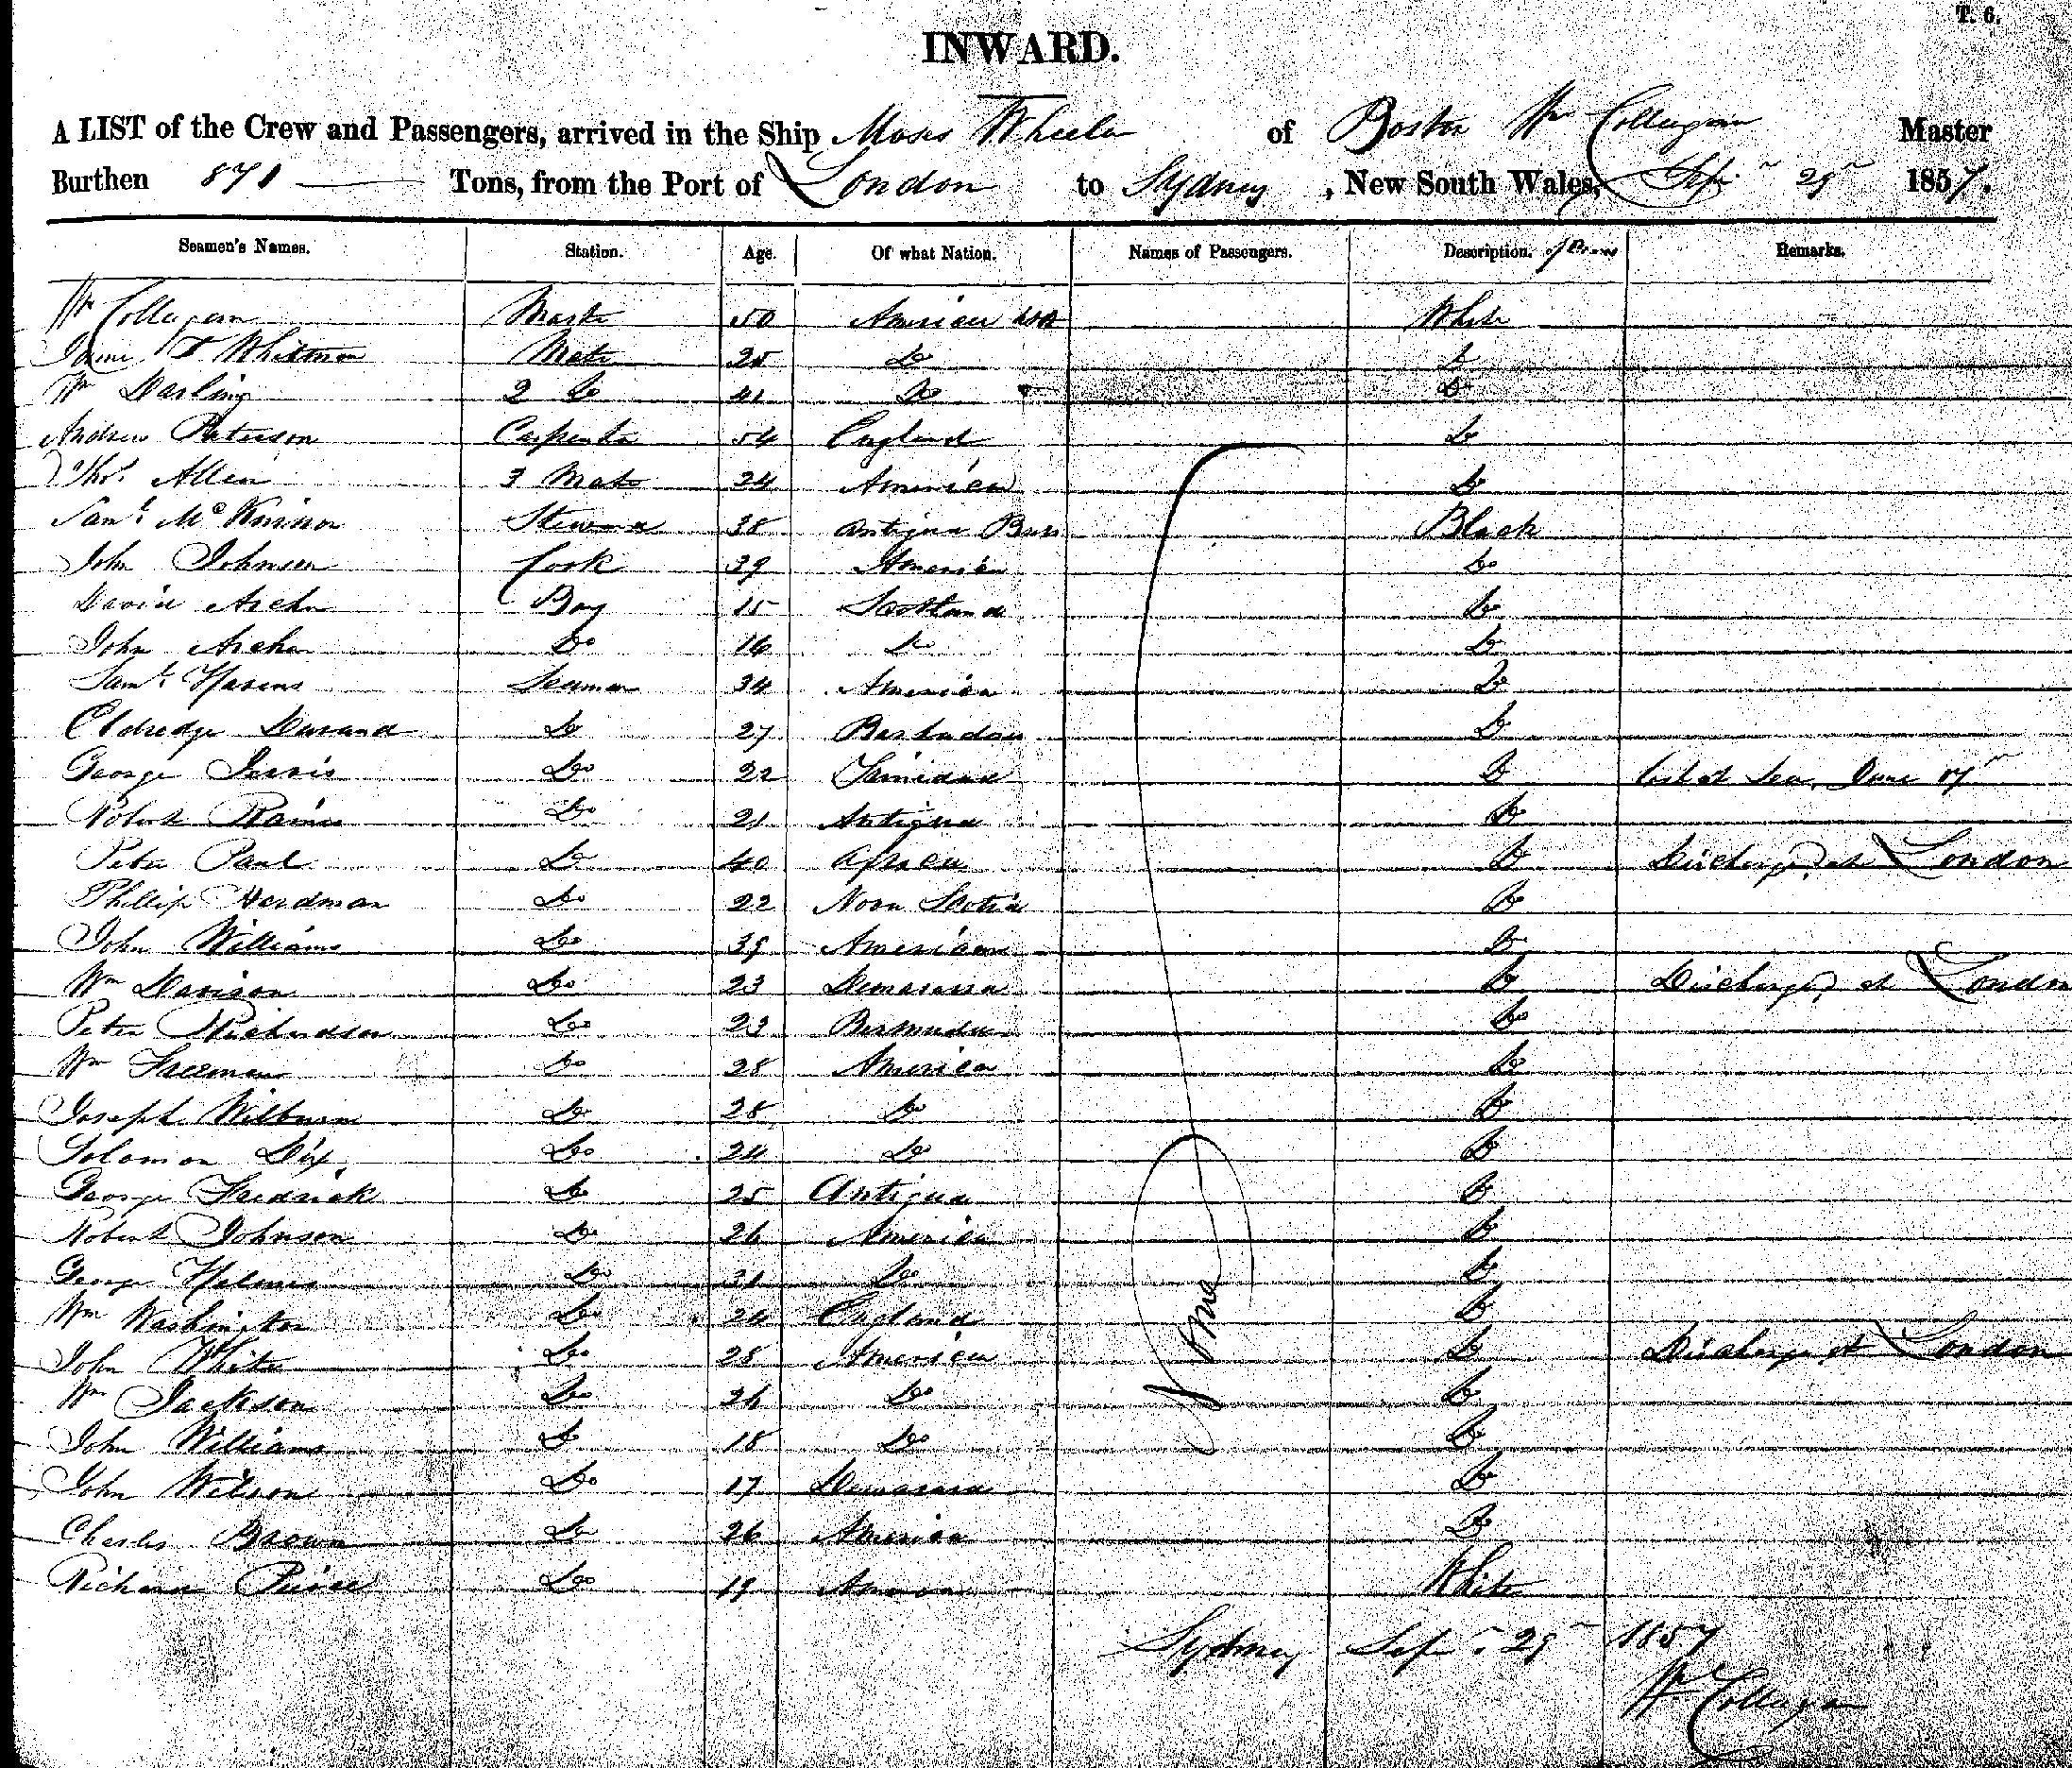 T. 6.
INWARD.
A LIST of the Crew and Passengers, arrived in the Ship Moses Wheeler of Boston Wm Collagan Master
Burthen 871 Tons, from the Port of London to Sydney, New South Wales, Sep. 29 1857.
Seamen's Names. Station. Age. Of what Nation. Names of Passengers. Description. Remarks.
Wm Collagan Master 50 America White
Whitman Mate Do Do
Wm Darling 2 Do 41 Do Do
Andrew Paterson Carpenter 54 England Do
Thos. Allen 3 Mate 24 America Do
Saml. McKinnon Steward 38 Antigua Black
John Johnson Cook 39 America Do
David Archer Boy 15 Scotland Do
John Archer Do 16 Do Do
Saml. Seaman 34 America Do
Eldredge Durand Do 27 Barbadoes Do
George Jarvis Do 22 Trinidad Do Lost at Sea, June 17
Robert Do 21 Antigua Do
Peter Paul Do 40 Africa Do Discharged at London
Phillip Herdman Do 22 Nova Scotia Do
John Williams Do 39 American Do
Wm Davison Do 23 Demarara Do Discharged at London
Peter Richardson Do 23 Bermuda Do
Wm Freeman Do 28 America Do
Joseph Wilburn Do 28 Do Do
Solomon Dix Do 24 Do Do
George Fredrick Do 25 Antigua Do
Robert Johnson Do 26 America Do
George Holmes Do 31 Do Do
Wm Washington Do 24 England Do
John White Do 28 America Do Discharged at London
Wm Jackson Do 26 Do Do
John Williams Do 18 Do Do
John Wilson Do 17 Demarara Do
Charles Brown Do 26 America Do
Richard Do 19 White
None
Sydney Sep. 29 1857
Wm Collagan